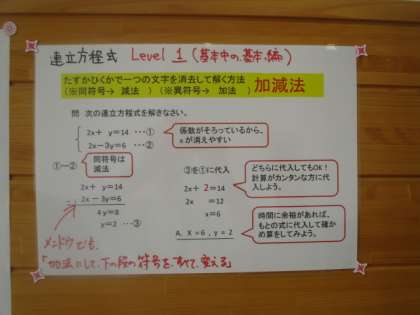 連立方程式 Level 1 (基本中の基本編)
たすかひくかで一つの文字を消去して解く方法
(※同符号→ 減法 ) (※異符号→ 加法 ) 加減法
問 次の連立方程式を解きなさい。
2x+ y=14 …①
2x-3y=6 …②
係数がそろっているから、
xが消えやすい
①-②
同符号は
減法
2x+ y=14
2x - 3y=6
4y=8
y=2 …③
③を①に代入
2x+ 2=14
2x =12
x=6
A. X=6 , y=2
どちらに代入してもOK!
計算がカンタンな方に代
入しよう。
時間に余裕があれば、
もとの式に代入して確か
め算をしてみよう。
メンドウでも、
「加法にして、下の段の符号をすべて変える」